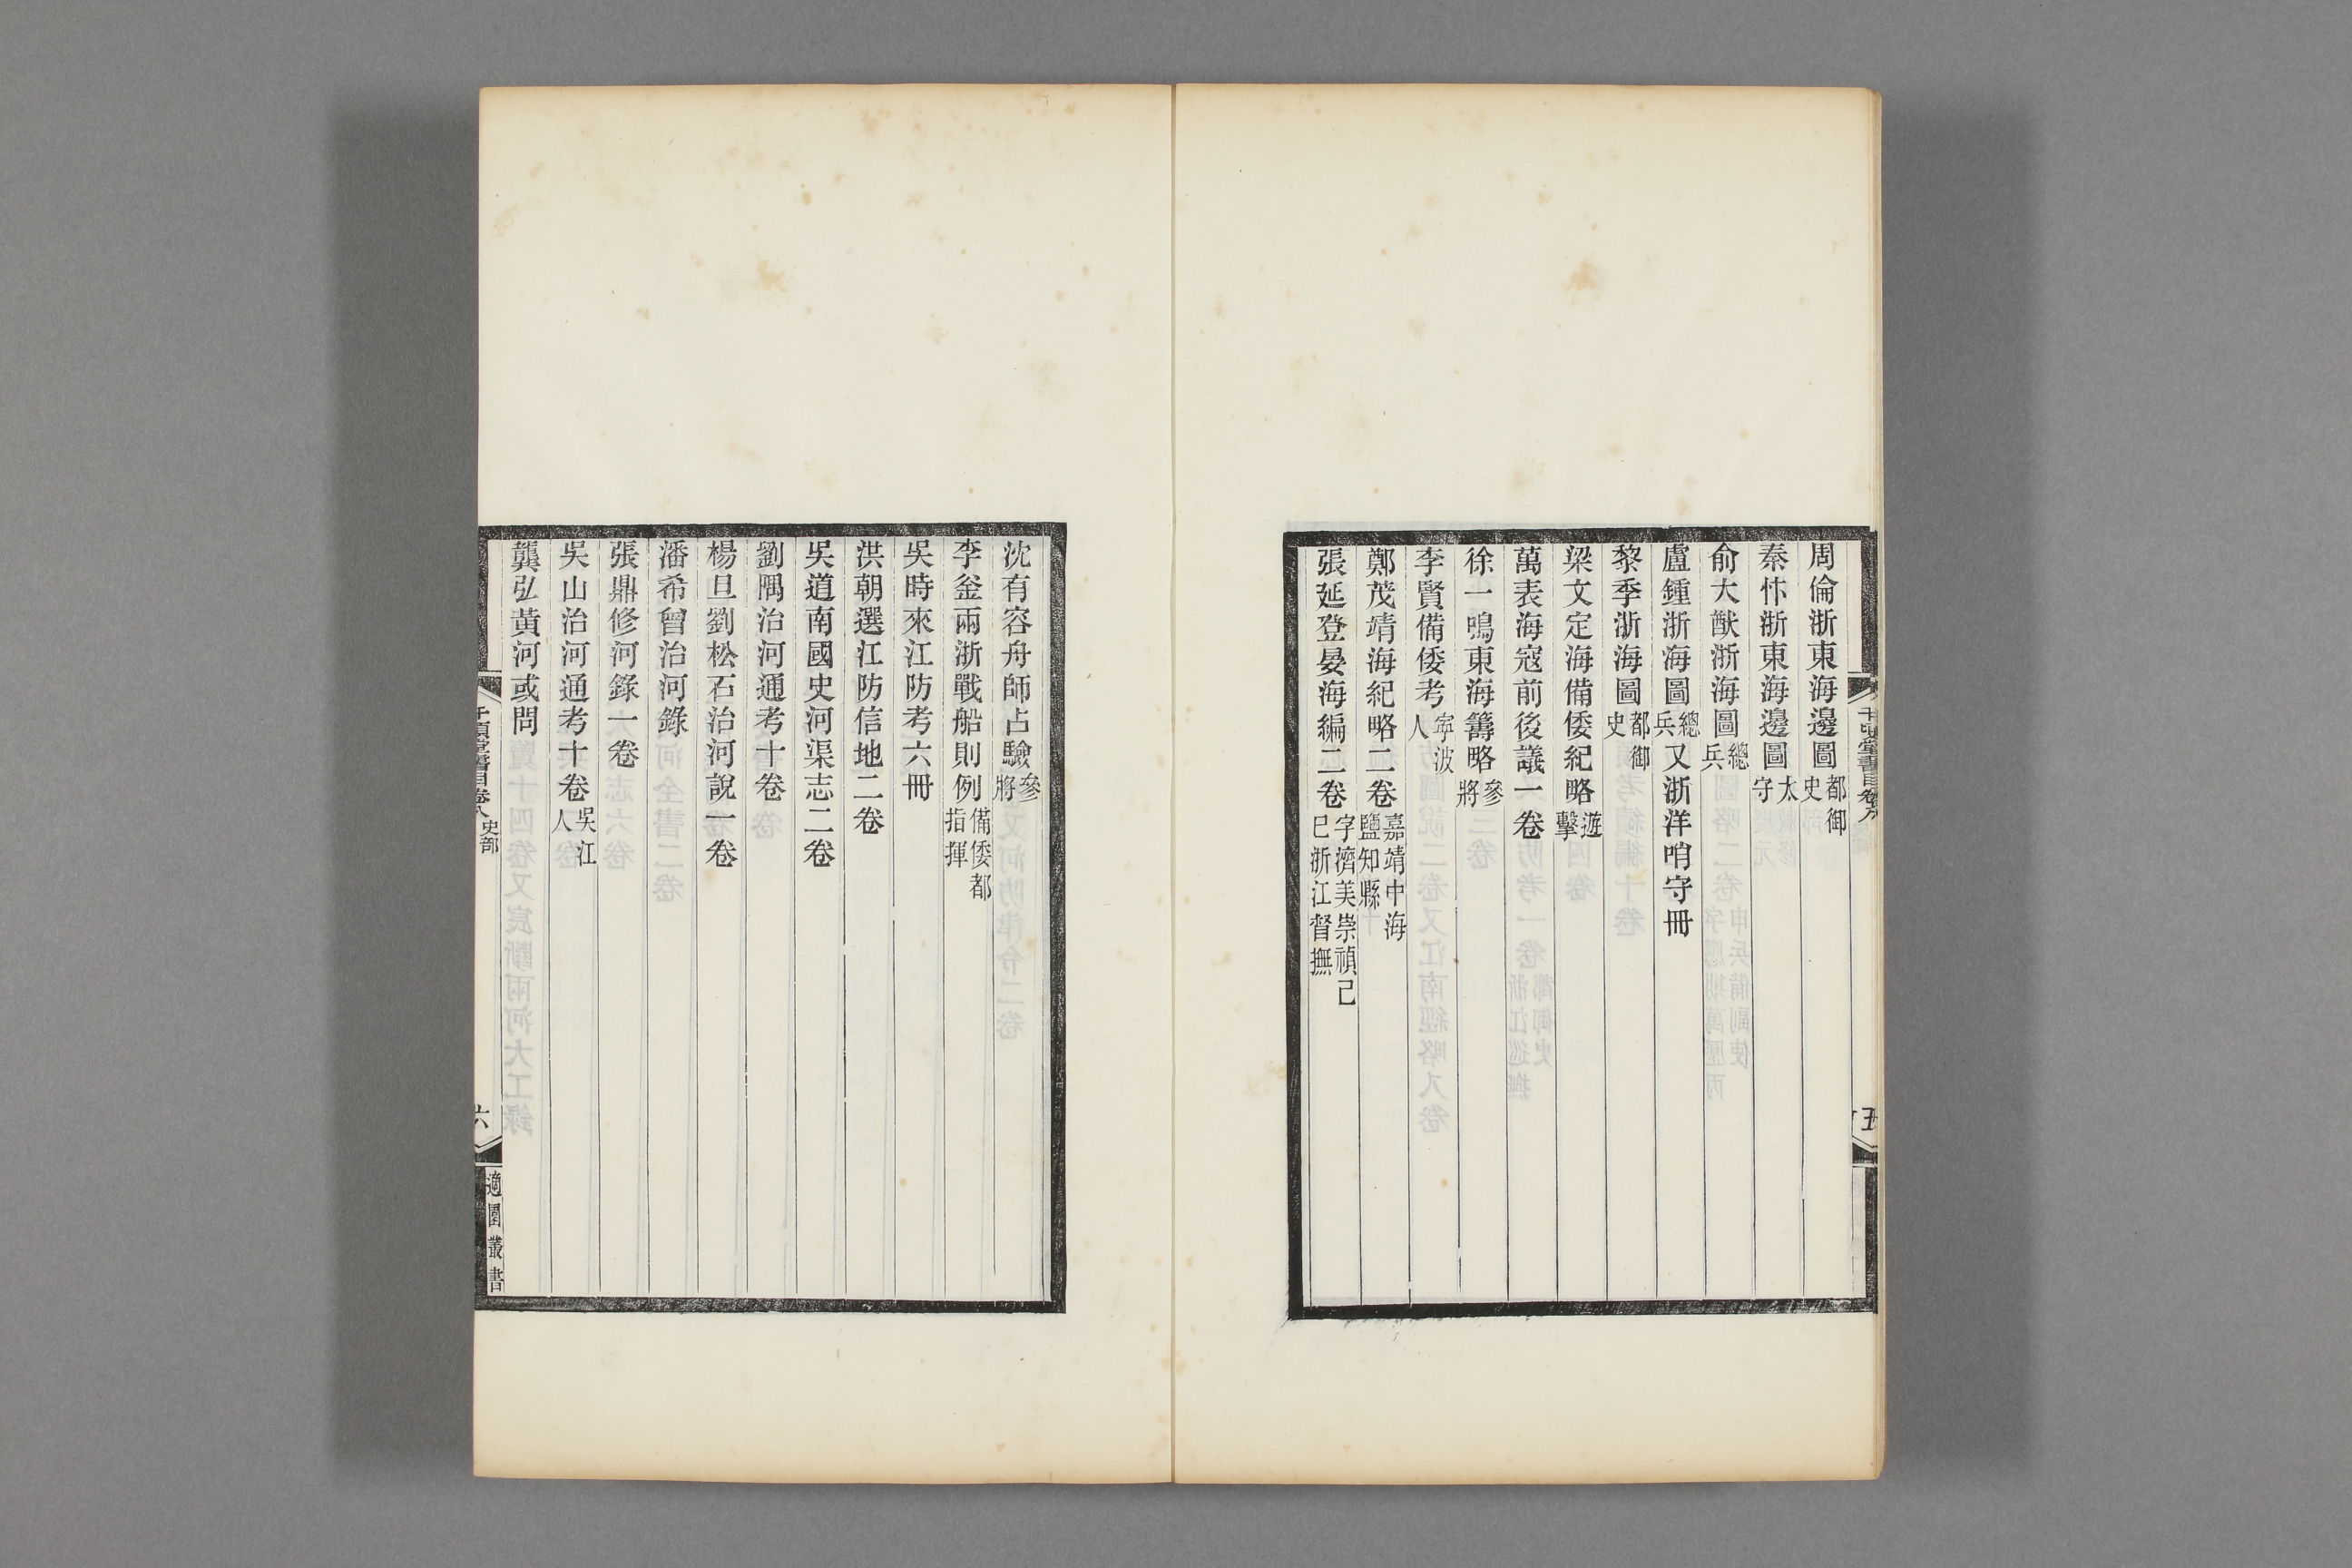 周倫浙東海邊圖都御史
秦忭浙東海邊圖太守
俞大猷浙海圖總兵
盧鍾浙海圖總兵又浙洋哨守冊
黎季浙海圖都御史
梁文定海備倭紀略遊擊
萬表海寇前後議一卷
徐一鳴東海籌略參將
李賢備倭考寧波人
鄭茂靖海紀略二卷嘉靖中海鹽知縣
張延登晏海編二卷字濟美崇禎己巳浙江督撫
沈有容舟師占驗參將
李釜兩浙戰船則例備倭都指揮
吳時來江防考六冊
洪朝選江防信地二卷
吳道南國史河渠志二卷
劉隅治河通考十卷
楊旦劉松石治河說一卷
潘希曾治河錄
張鼎修河錄一卷
吳山治河通考十卷吳江人
龔弘黃河或問
千頃堂書目卷八 史部
六
適園叢書